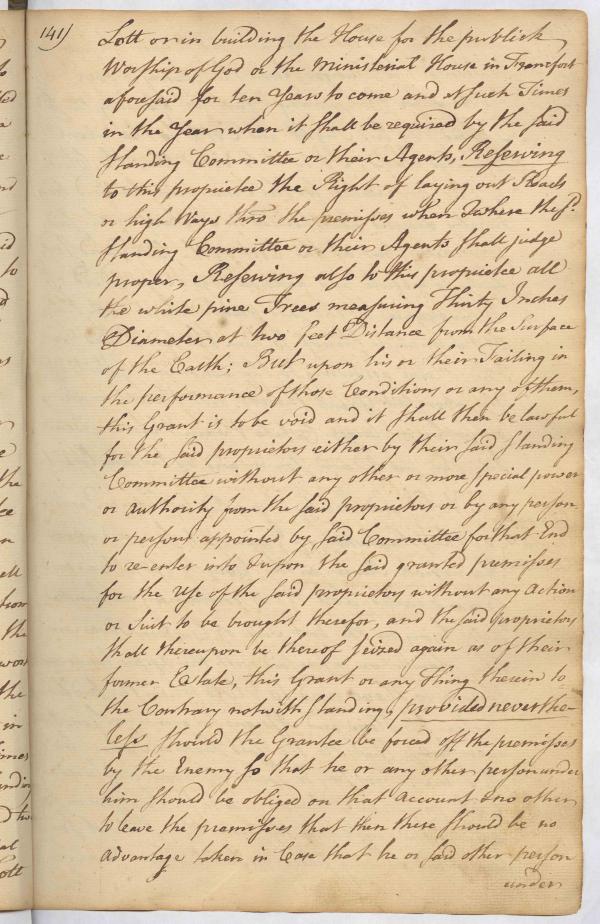 141)
Lott or in building the House for the publick
Worship of God or the Ministerial House in Francfort
aforesaid for ten Years to come and at such Times
in the Year when it shall be required by the said
Standing Committee or their Agents, Reserving
to this proprietee the Right of laying out Roads
or high Ways thro the premisses when & where the sd.
Standing Committee or their Agents shall judge
proper, Reserving also to this proprietee all
the white pine Trees measuring Thirty Inches
Diameter at two feet Distance from the Surface
of the Earth; But upon his or their Failing in
the performance of those Conditions or any of them,
this Grant is to be void and it shall then be lawful
for the said proprietors either by their said Standing
Committee without any other or more special power
or authority from the said proprietors or by any person
or persons appointed by said Committee for that End
to re-enter into & upon the said granted premisses
for the Use of the said proprietors without any Action
or Suit to be brought therefor, and the said proprietors
shall thereupon be thereof seized again as of their
former Estate, this Grant or any Thing therein to
the Contrary notwithstanding, provided neverthe-
less should the Grantee be forced off the premisses
by the Enemy so that he or any other person under
him should be obliged on that account & no other
to leave the premisses that then there should be no
advantage taken in Case that he or said other person
under